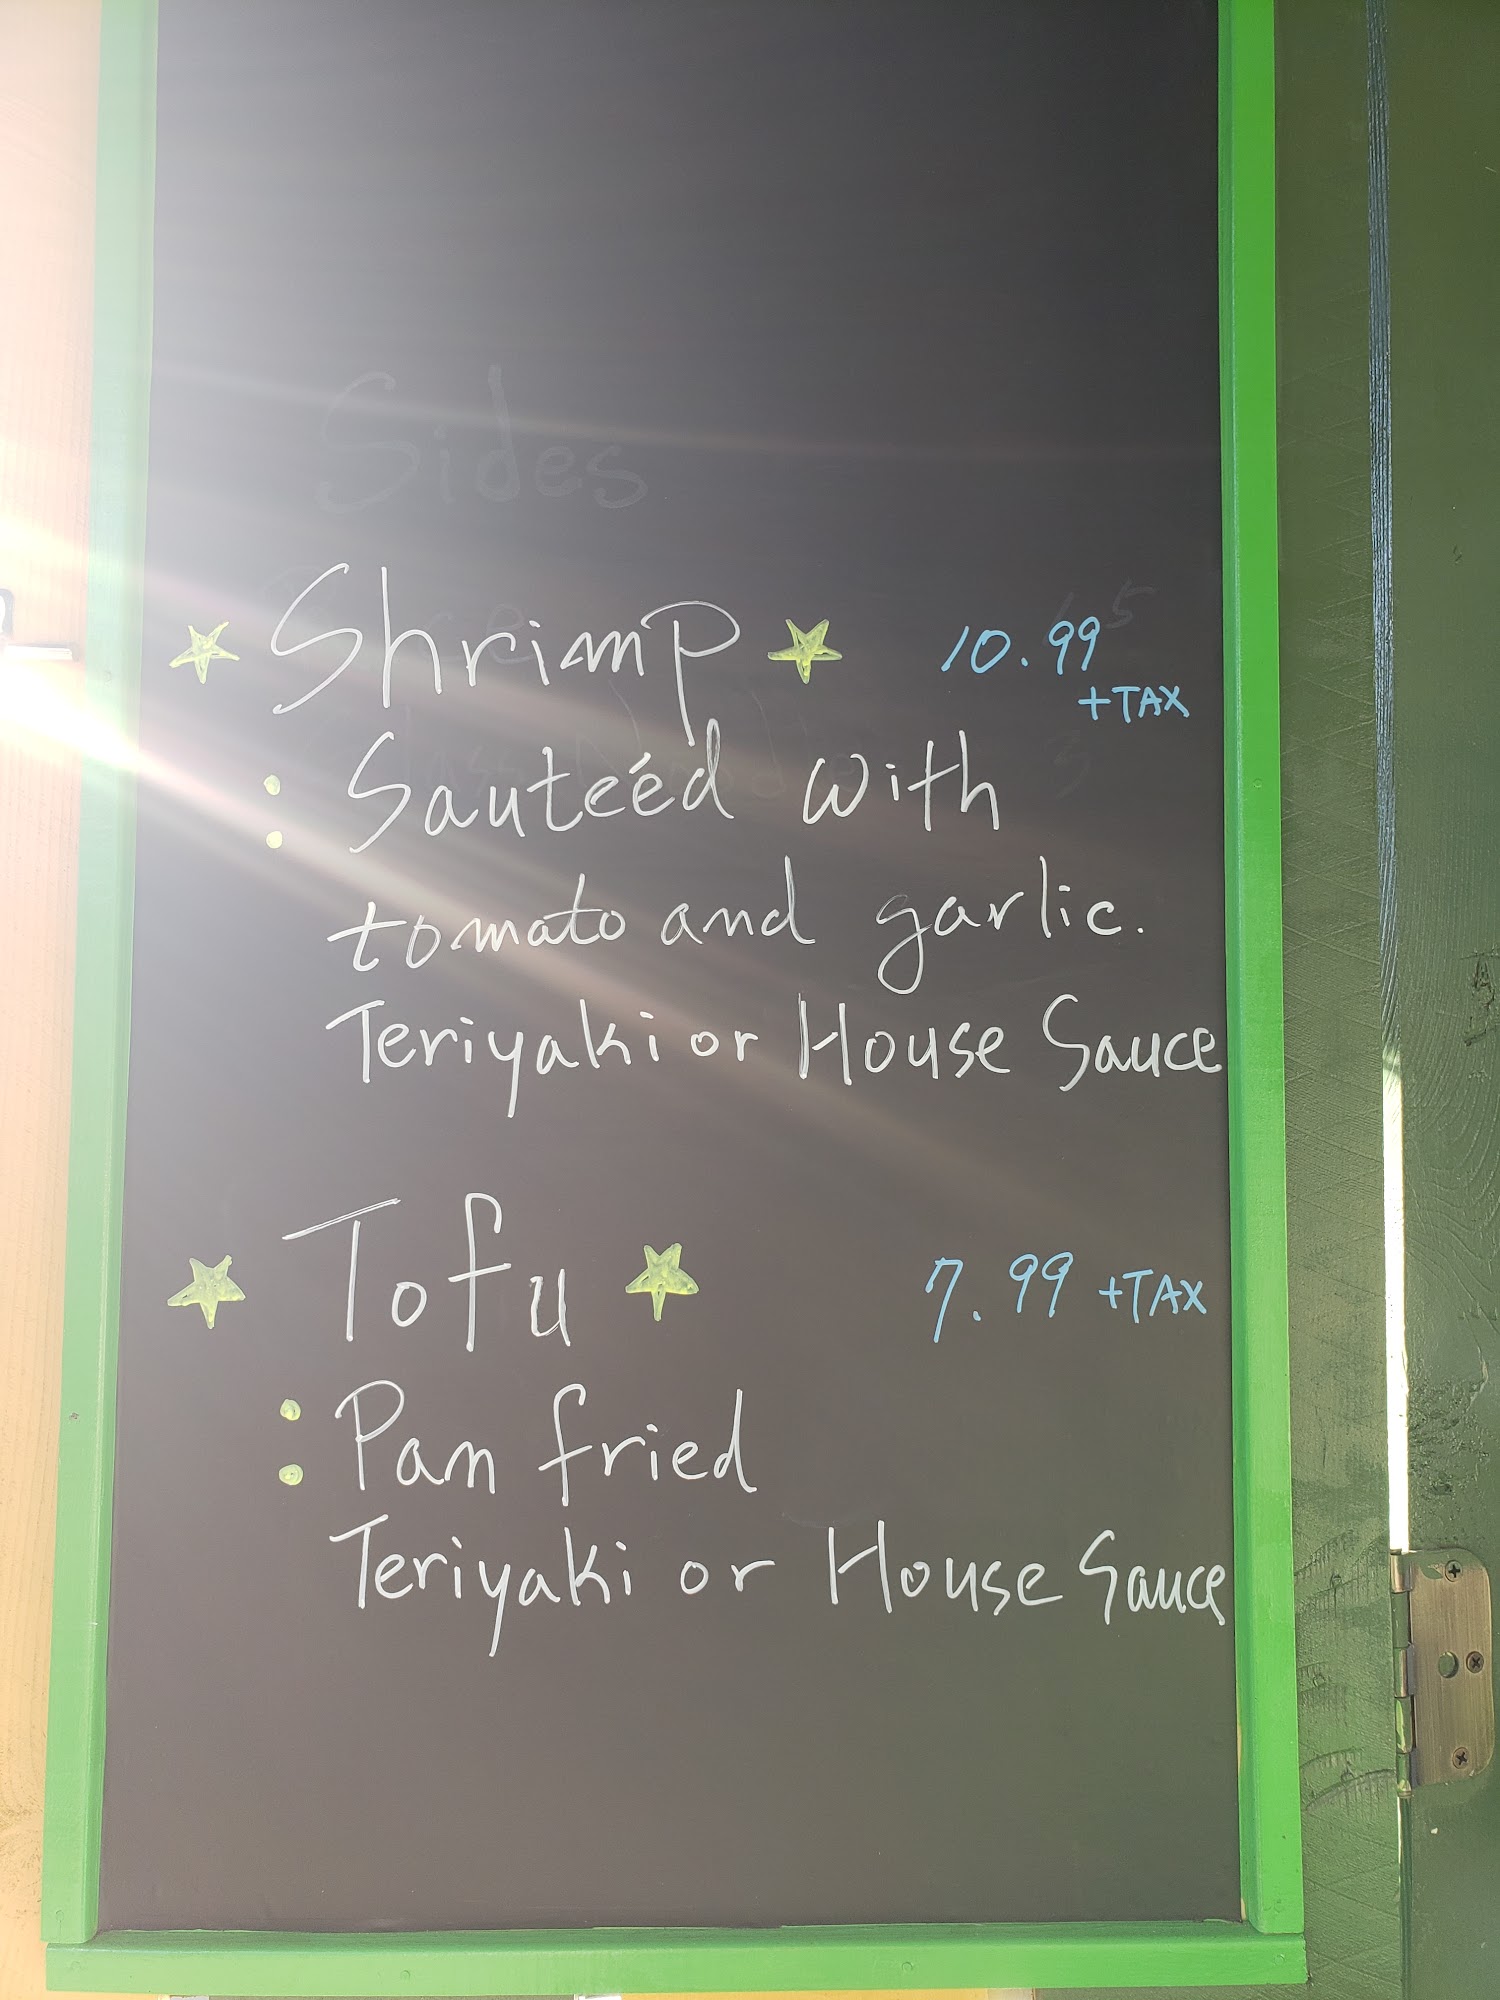 Sides
Shrimp 10.99
+TAX
: Sauteéd with
tomato and garlic.
Teriyaki or House Sauce
Tofu 7.99 +TAX
: Pan fried
Teriyaki or House Sauce